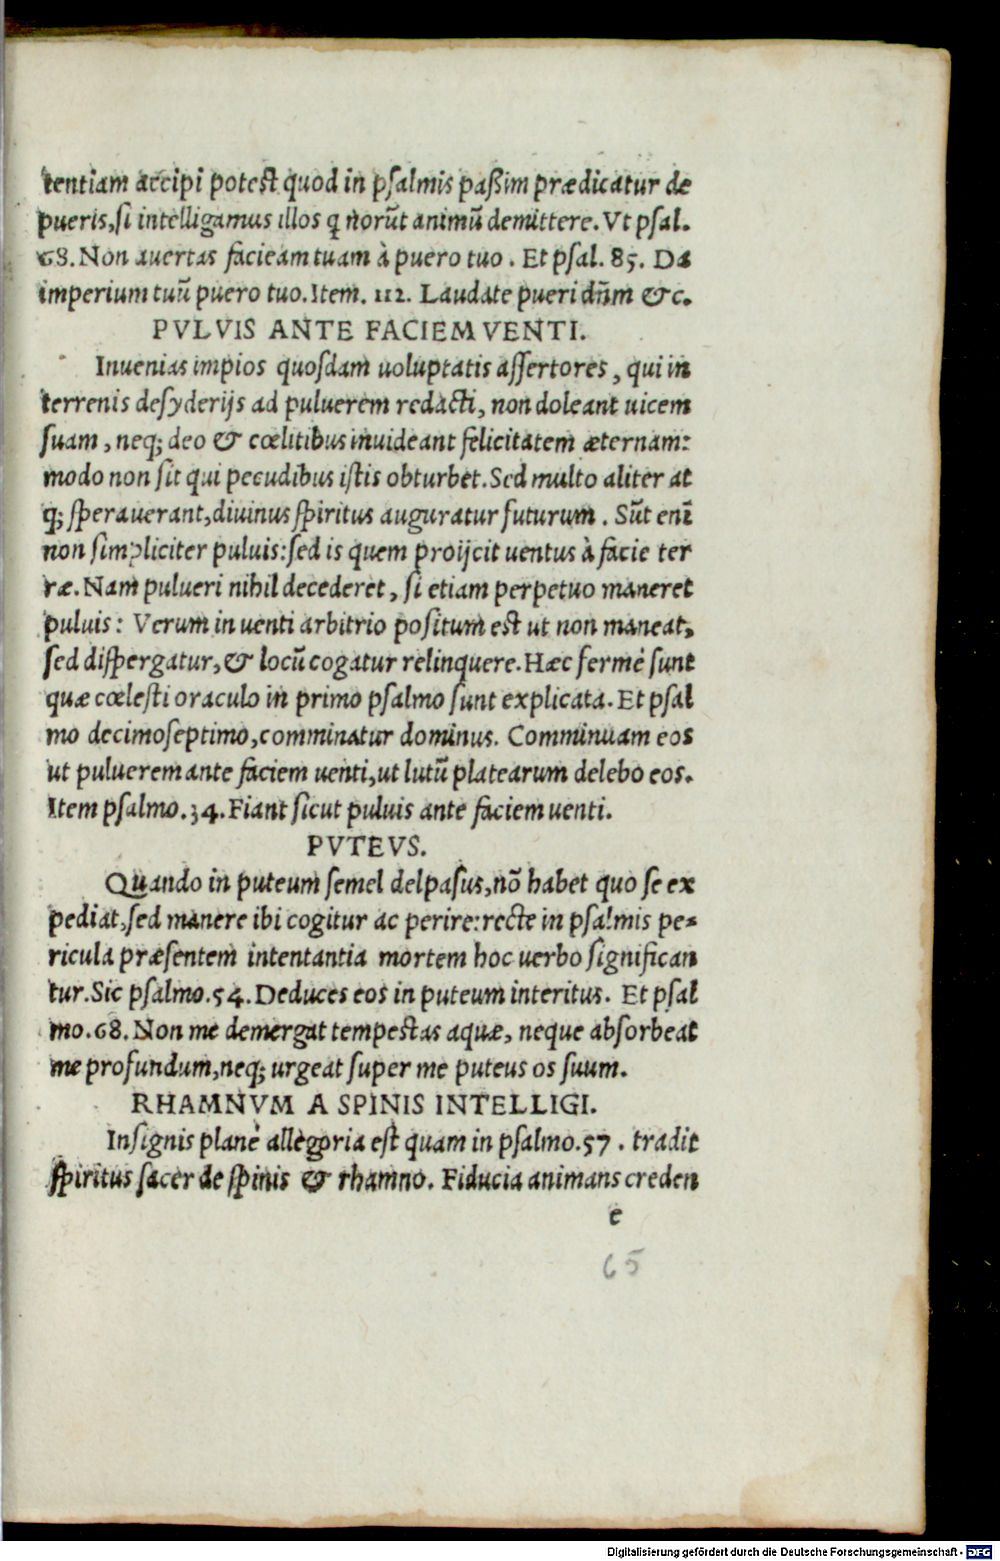 tentiam accipi potest quod in psalmis paßim prædicatur de
pueris,si intelligamus illos q norũt animũ demittere. Vt psal.
68. Non auertas facieam tuam à puero tuo . Et psal. 85. Da
imperium tuũ puero tuo. Item. 112. Laudate pueri dñm &c.
PVLVIS ANTE FACIEM VENTI.
Inuenias impios quosdam uoluptatis assertores , qui in
terrenis desyderijs ad puluerem redacti, non doleant uicem
suam , neq; deo & cœlitibus inuideant felicitatem æternam:
modo non sit qui pecudibus istis obturbet. Sed multo aliter at
q; sperauerant,diuinus spiritus auguratur futurum . Sũt enĩ
non simpliciter puluis:sed is quem proijcit uentus à facie ter
ræ. Nam pulueri nihil decederet , si etiam perpetuo maneret
puluis : Verum in uenti arbitrio positum est ut non maneat,
sed dispergatur, & locũ cogatur relinquere. Hæc fermè sunt
quæ cœlesti oraculo in primo psalmo sunt explicata. Et psal
mo decimoseptimo,comminatur dominus. Comminuam eos
ut puluerem ante faciem uenti,ut lutũ platearum delebo eos.
Item psalmo.34. Fiant sicut puluis ante faciem uenti.
PVTEVS.
Quando in puteum semel delpasus,nõ habet quo se ex
pediat,sed manere ibi cogitur ac perire:recte in psalmis pe-
ricula præsentem intentantia mortem hoc uerbo significan
tur. Sic psalmo.54. Deduces eos in puteum interitus. Et psal
mo.68. Non me demergat tempestas aquæ, neque absorbeat
me profundum,neq; urgeat super me puteus os suum.
RHAMNVM A SPINIS INTELLIGI.
Insignis planè allegoria est quam in psalmo.57 . tradit
spiritus sacer de spinis & rhamno. Fiducia animans creden
e
65
Digitalisierung gefördert durch die Deutsche Forschungsgemeinschaft - DFG